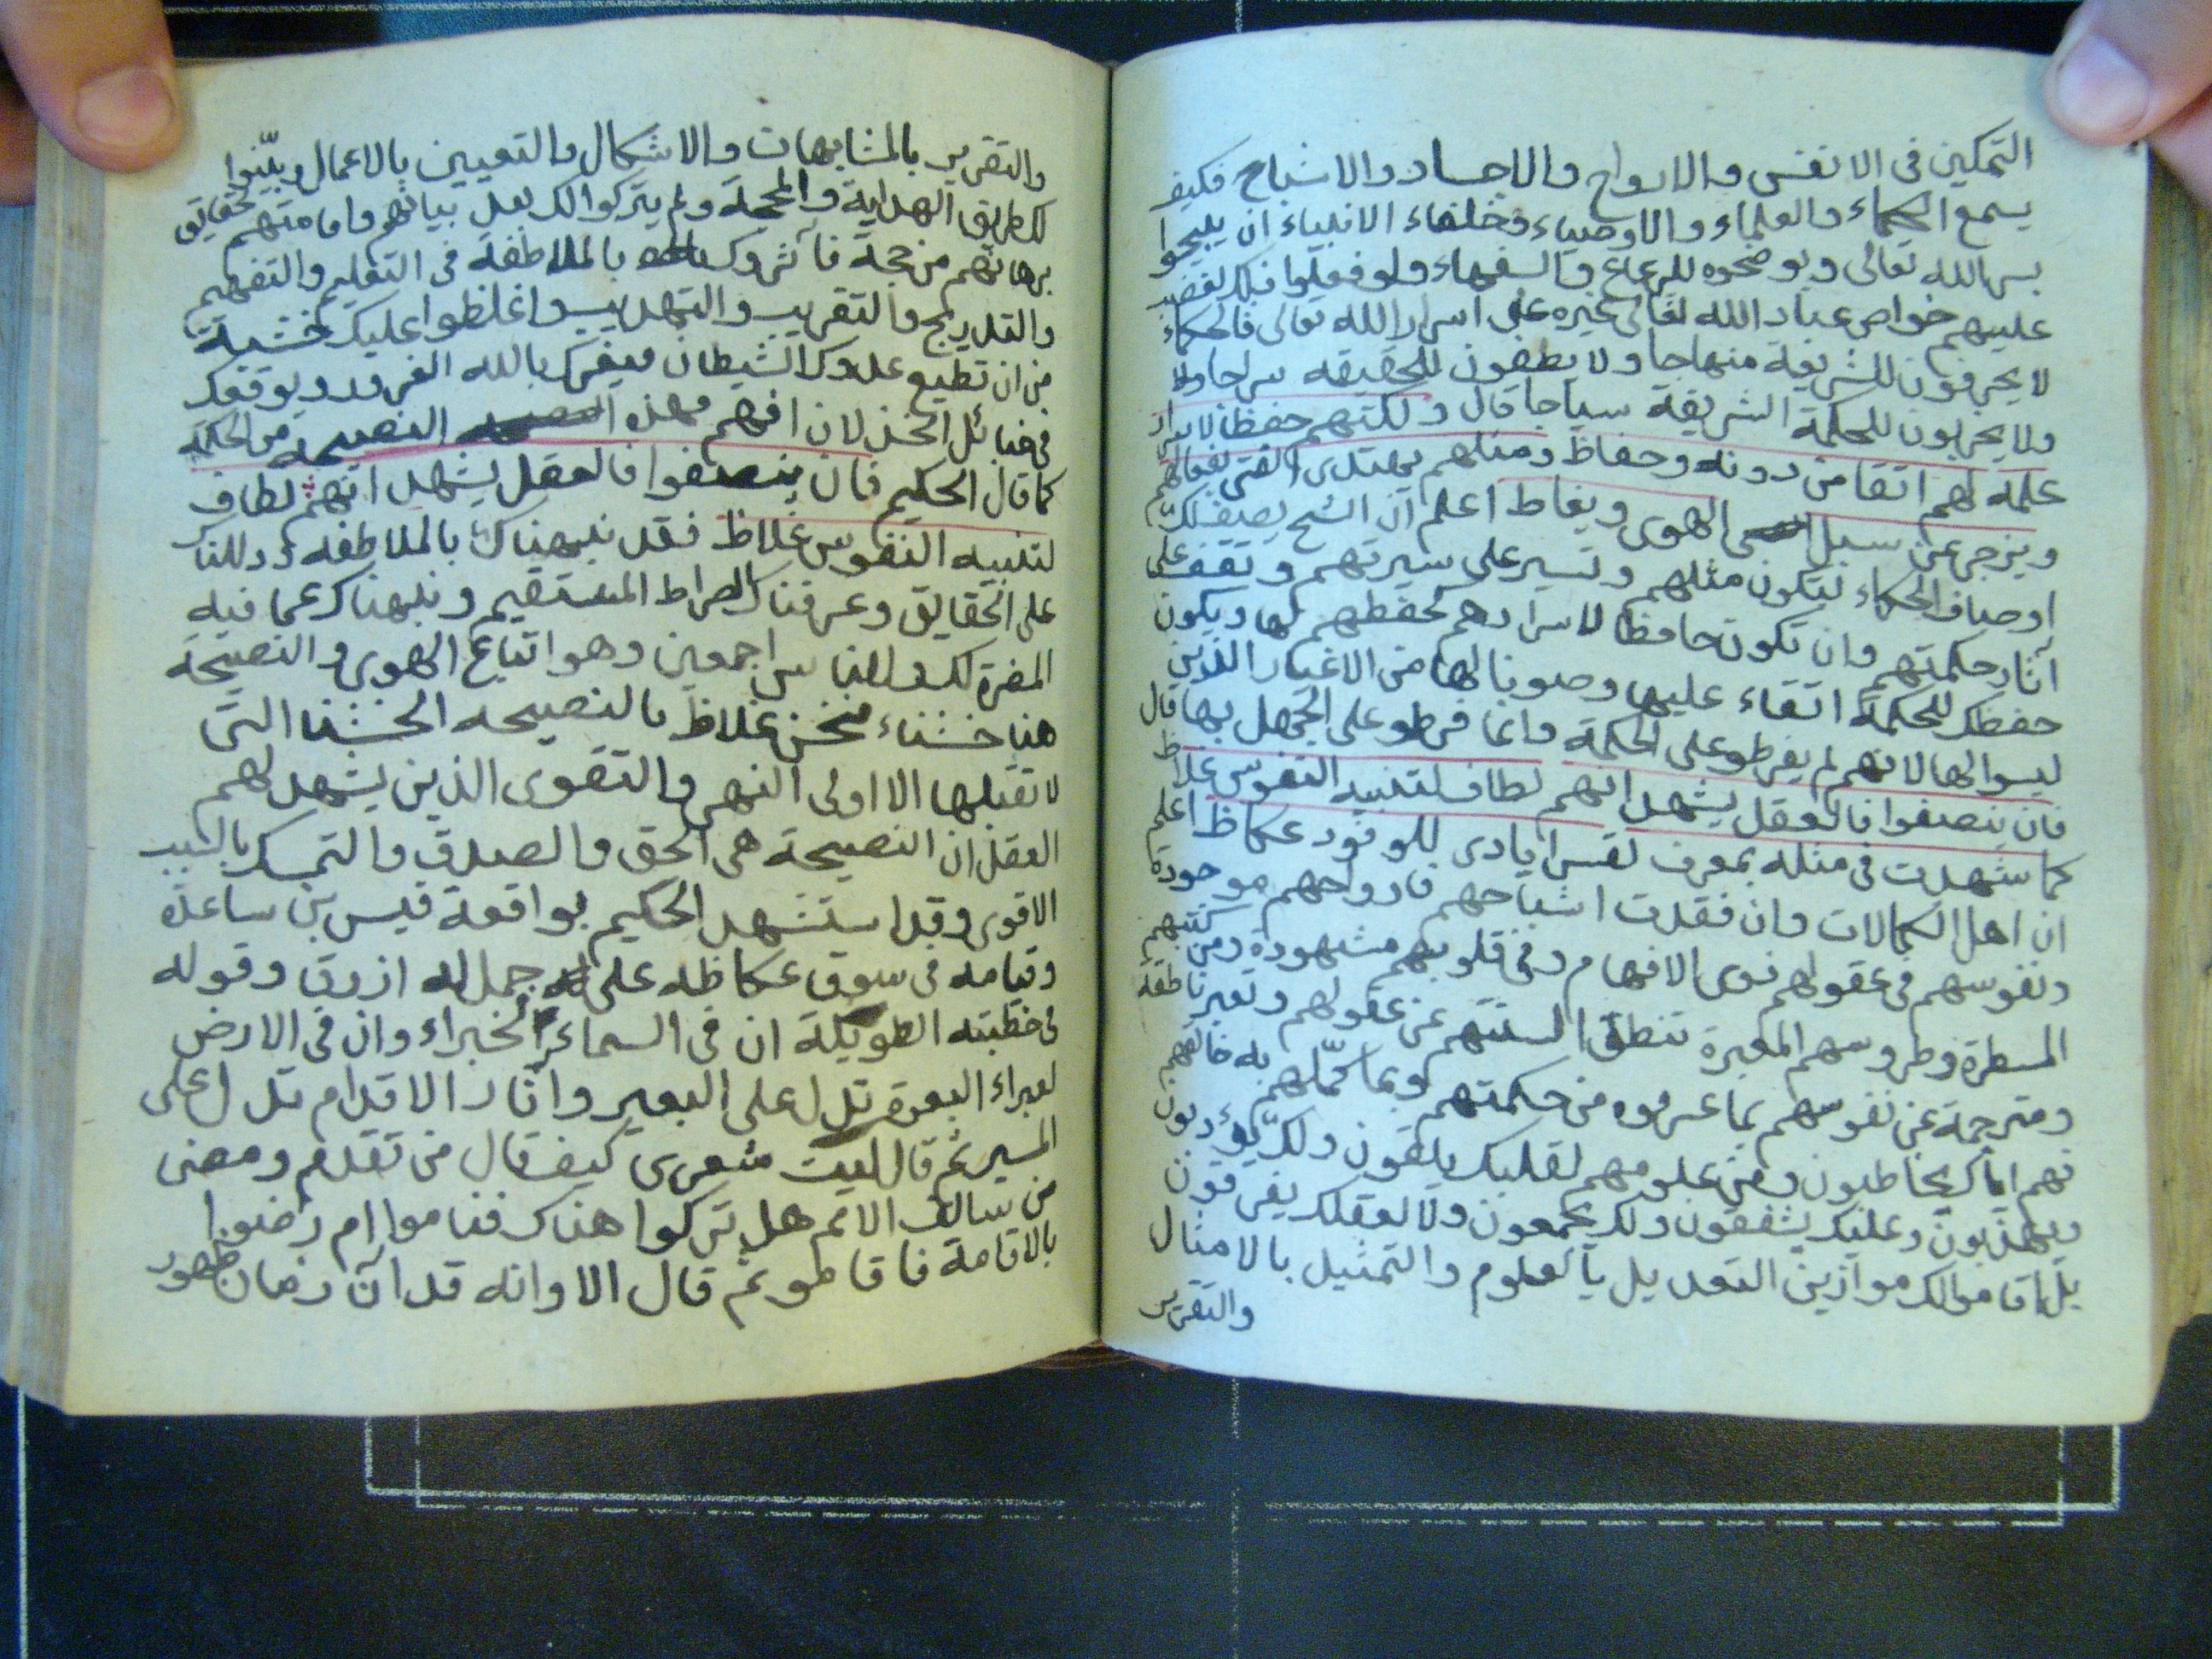 التمكين فى الانفس والارواح والاجساد والاشباح فكيف
يسمع الحكماء والعلماء والاوصياء وخلفاء الانبياء ان يبيحوا
بسر الله تعالى ويوضحوه للرعاع والسفهاء ولو فعلوا ذلك لغضب
عليهم خواص عباد الله تعالى غيره على اسرار الله تعالى فالحكماء
لا يحرفون للشريعة منهاجا ولا يطفون للحقيقه سراجا ولا
ولا يخربون للحكمة الشريفة سياجا قال ولكنهم حفظا لاسرار
علمه لهم اتقا من دونه وحفاظ ومثلهم يهتدى الفتى بفعالهم
وينزجر عن سبل الهوى ويغاط اعلم ان الشيخ يصف لك
اوصاف الحكماء لتكون مثلهم وتسير على سيرتهم وتقف على
آثار حكمتهم وان تكون حافظا لاسرارهم كحفظهم لها ويكون
حفظك للحكمة اتقاء عليها وصونا لها من الاغيار الذين
ليسوا لها لانهم لم يفرطو على الحكمة وانما فرطو على الجهل بها قال
فان ينصفوا فالعقل يشهد انهم لطاف لتنبيه النفوس غلاظ
كما شهدت فى مثله بمعرف لقس ايادى للوفود عكاظ اعلم
ان اهل الكمالات وان فقدت اشباحهم فارواحهم موجودة
ونفوسهم فى عقولهم ذوى الافهام وفى قلوبهم مشهودة ومن كتبهم
المسطرة وطروسهم المعبرة تنطق السنتهم عن عقولهم وتعبر ناطقة
ومترجمة عن نفوسهم بما عرفوه من حكمتهم وبما كمّلهم به خالقهم
فهم اياك يخاطبون ومن علومهم لقلبك يلقون ولك يؤدبون
ويهذبون وعليك يشفقون ولك يجمعون ولا لعقلك يفرقون
بل اقاموا لك موازين التعديل بالعلوم والتمثيل بالامثال
والتقرير
والتقرير بالمشابهات والاشكال والتعيين بالاعمال وبيّنوا
لك طريق الهداية والمحجة ولم يتركوا لك بعد بيانهم واقامتهم بحقايق
برهانهم من حجة فآثروك بالملاطفة فى التعليم والتفهيم
والتدريج والتقريب والتهذيب واغلظوا عليك خشية
من ان تطيع عدوك الشيطان فيغرك بالله الغرور ويوقعك
فى حبائل الخذلان افهم فهذه النصيحة من الحكمة
كما قال الحكيم فان ينصفوا فالعقل يشهد انهم لطاف
لتنبيه النفوس غلاظ فقد نبهناك بالملاطفه ودللناك
على الحقايق وعرفناك الصراط المستقيم ونبهناك عما فيه
المضرة لك وللناس اجمعين وهو اتباع الهوى والنصيحة
هنا خشناء فنحن غلاظ بالنصيحه الخشنا التى
لا تقبلها الا اولى النهى والتقوى الذين يشهد لهم
العقل ان النصيحة هى الحق والصدق والتمسك بالسبب
الاقوى وقد استشهد الحكيم بواقعة قيس بن ساعدة
وقيامه فى سوق عكاظه على جمل له ازرق وقوله
فى خطبته الطويلة ان فى السماء لخبراء وان فى الارض
لعبراء البعرة تدل على البعير واثار الاقدام تدل على
المسير ثم قال ليت شعرى كيف قال من تقدم ومضى
من سالف الامم هل تركوا هناك فناموا ام رضوا
بالاقامة فاقاموا ثم قال الا وانه قد آن زمان ظهور